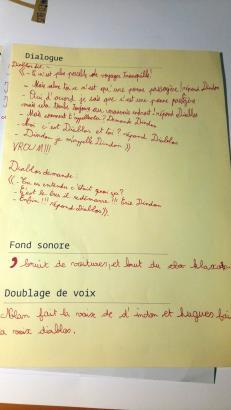 Dialogue
Diablos dit :
« - Ce n'est plus possible de voyager tranquille !
- Mais alors ce n'est qu'une panne passagère ! répond Dindon
- Bien d'accord je sais que c'est une panne passagère
mais un toujours au mauvais endroit ! répond Diablos
- Mais comment t'appelles-tu ? Demande Dindon
- Moi c'est Diablos et toi ? répond Diablos
- Dindon je m'appelle Dindon »
VROUM!!!
Diablos demande :
« - Tu as entendu c'était quoi ça ?
- C'est le bus il redémarre !!! Crie Dindon
- Enfin !!! répond Diablos ».
Fond sonore
bruit de voitures, et bruit du klaxon
Doublage de voix
Nolan fait la voix de d'indon et hugues fait
la voix diablos.